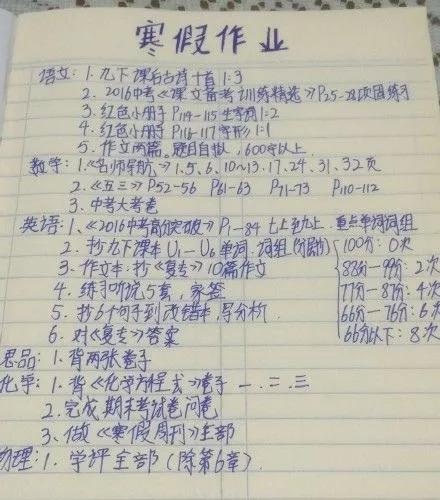 寒假作业
语文: 1. 九下课后古诗十首 1:3
2. 2016中考《课文备考训练精选》P25-28巩固练习
3. 红色小册子 P114-115 生字词 1:2
4. 红色小册子 P116-117 字形 1:1
5. 作文两篇。题目自拟, 600字以上.
数学: 1.《名师导航》1.5.6.10~13.17.24.31.32页
2.《五三》P52-56 P61-63 P71-73 P110-112
3. 中考大考卷
英语: 1.《2016中考高分突破》P1-84 七上至九上. 重点单词词组
2. 抄九下课本 U1-U6 单词. 词组 100分: 0次
3. 作文本: 抄《复专》10篇作文 88分-99分: 2次
4. 练习听说5套, 家签 77分-87分: 4次
5. 抄6个句子到改错本, 写分析. 66分-76分: 6次
6. 对《复专》答案 66分以下: 8次
思品: 1. 背两张卷子
化学: 1. 背《化学方程式》卷子 一.二.三
2. 完成期末考试卷问卷
3. 做《寒假周刊》全部
物理: 1. 学评全部 (除第6章).